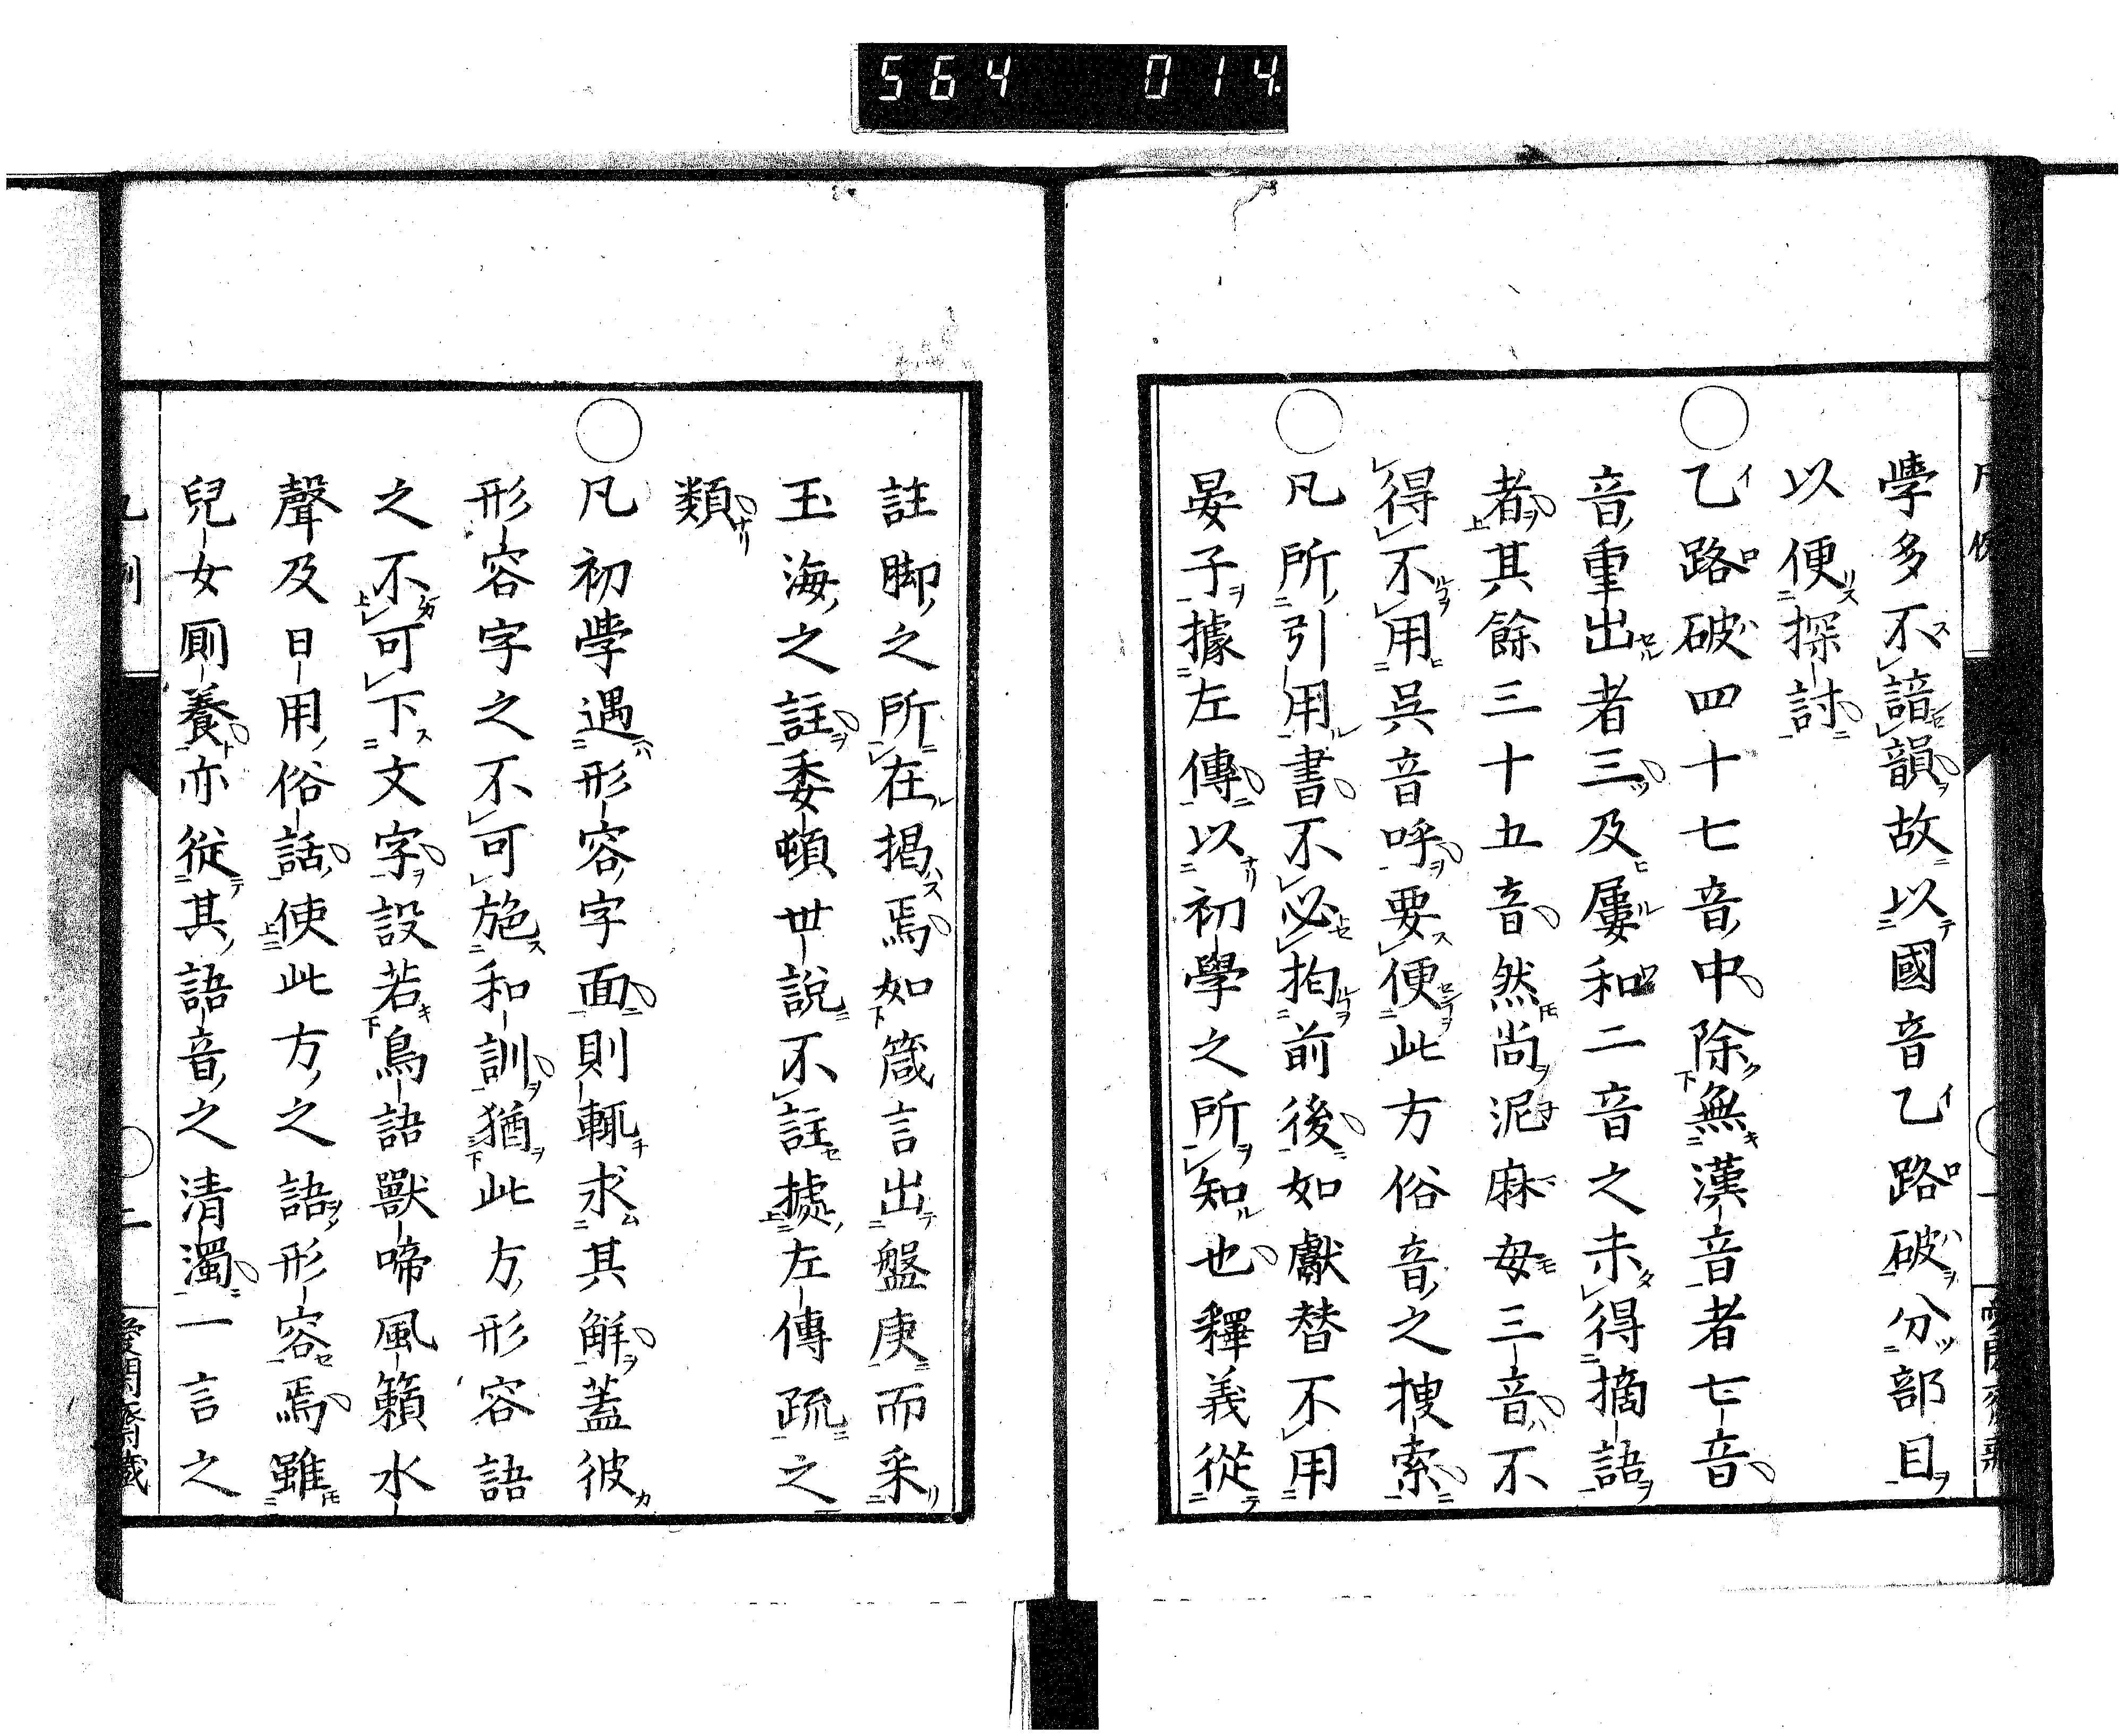 564 014
學多不諳韻故以國音乙路破分部目
以便探討
○乙路破四十七音中除無漢音者七音
音重出者三及屢和二音之未得摘語
者其餘三十五音然尚泥麻毎三音不
得不用呉音呼要便此方俗音之捜索
○凡所引用書不必拘前後如獻替不用
晏子據左傳以初學之所知也釋義從
註脚之所在掲焉如箴言出盤庚而采
玉海之註委頓世説不註據左傳疏之
類
○凡初學遇形容字面則輒求其解蓋彼
形容字之不可施和訓猶此方形容語
之不可下文字設若鳥語獸啼風籟水
聲及日用俗話使此方之語形容焉雖
兒女厠養亦從其語音之清濁一言之
二
愛閑齋藏